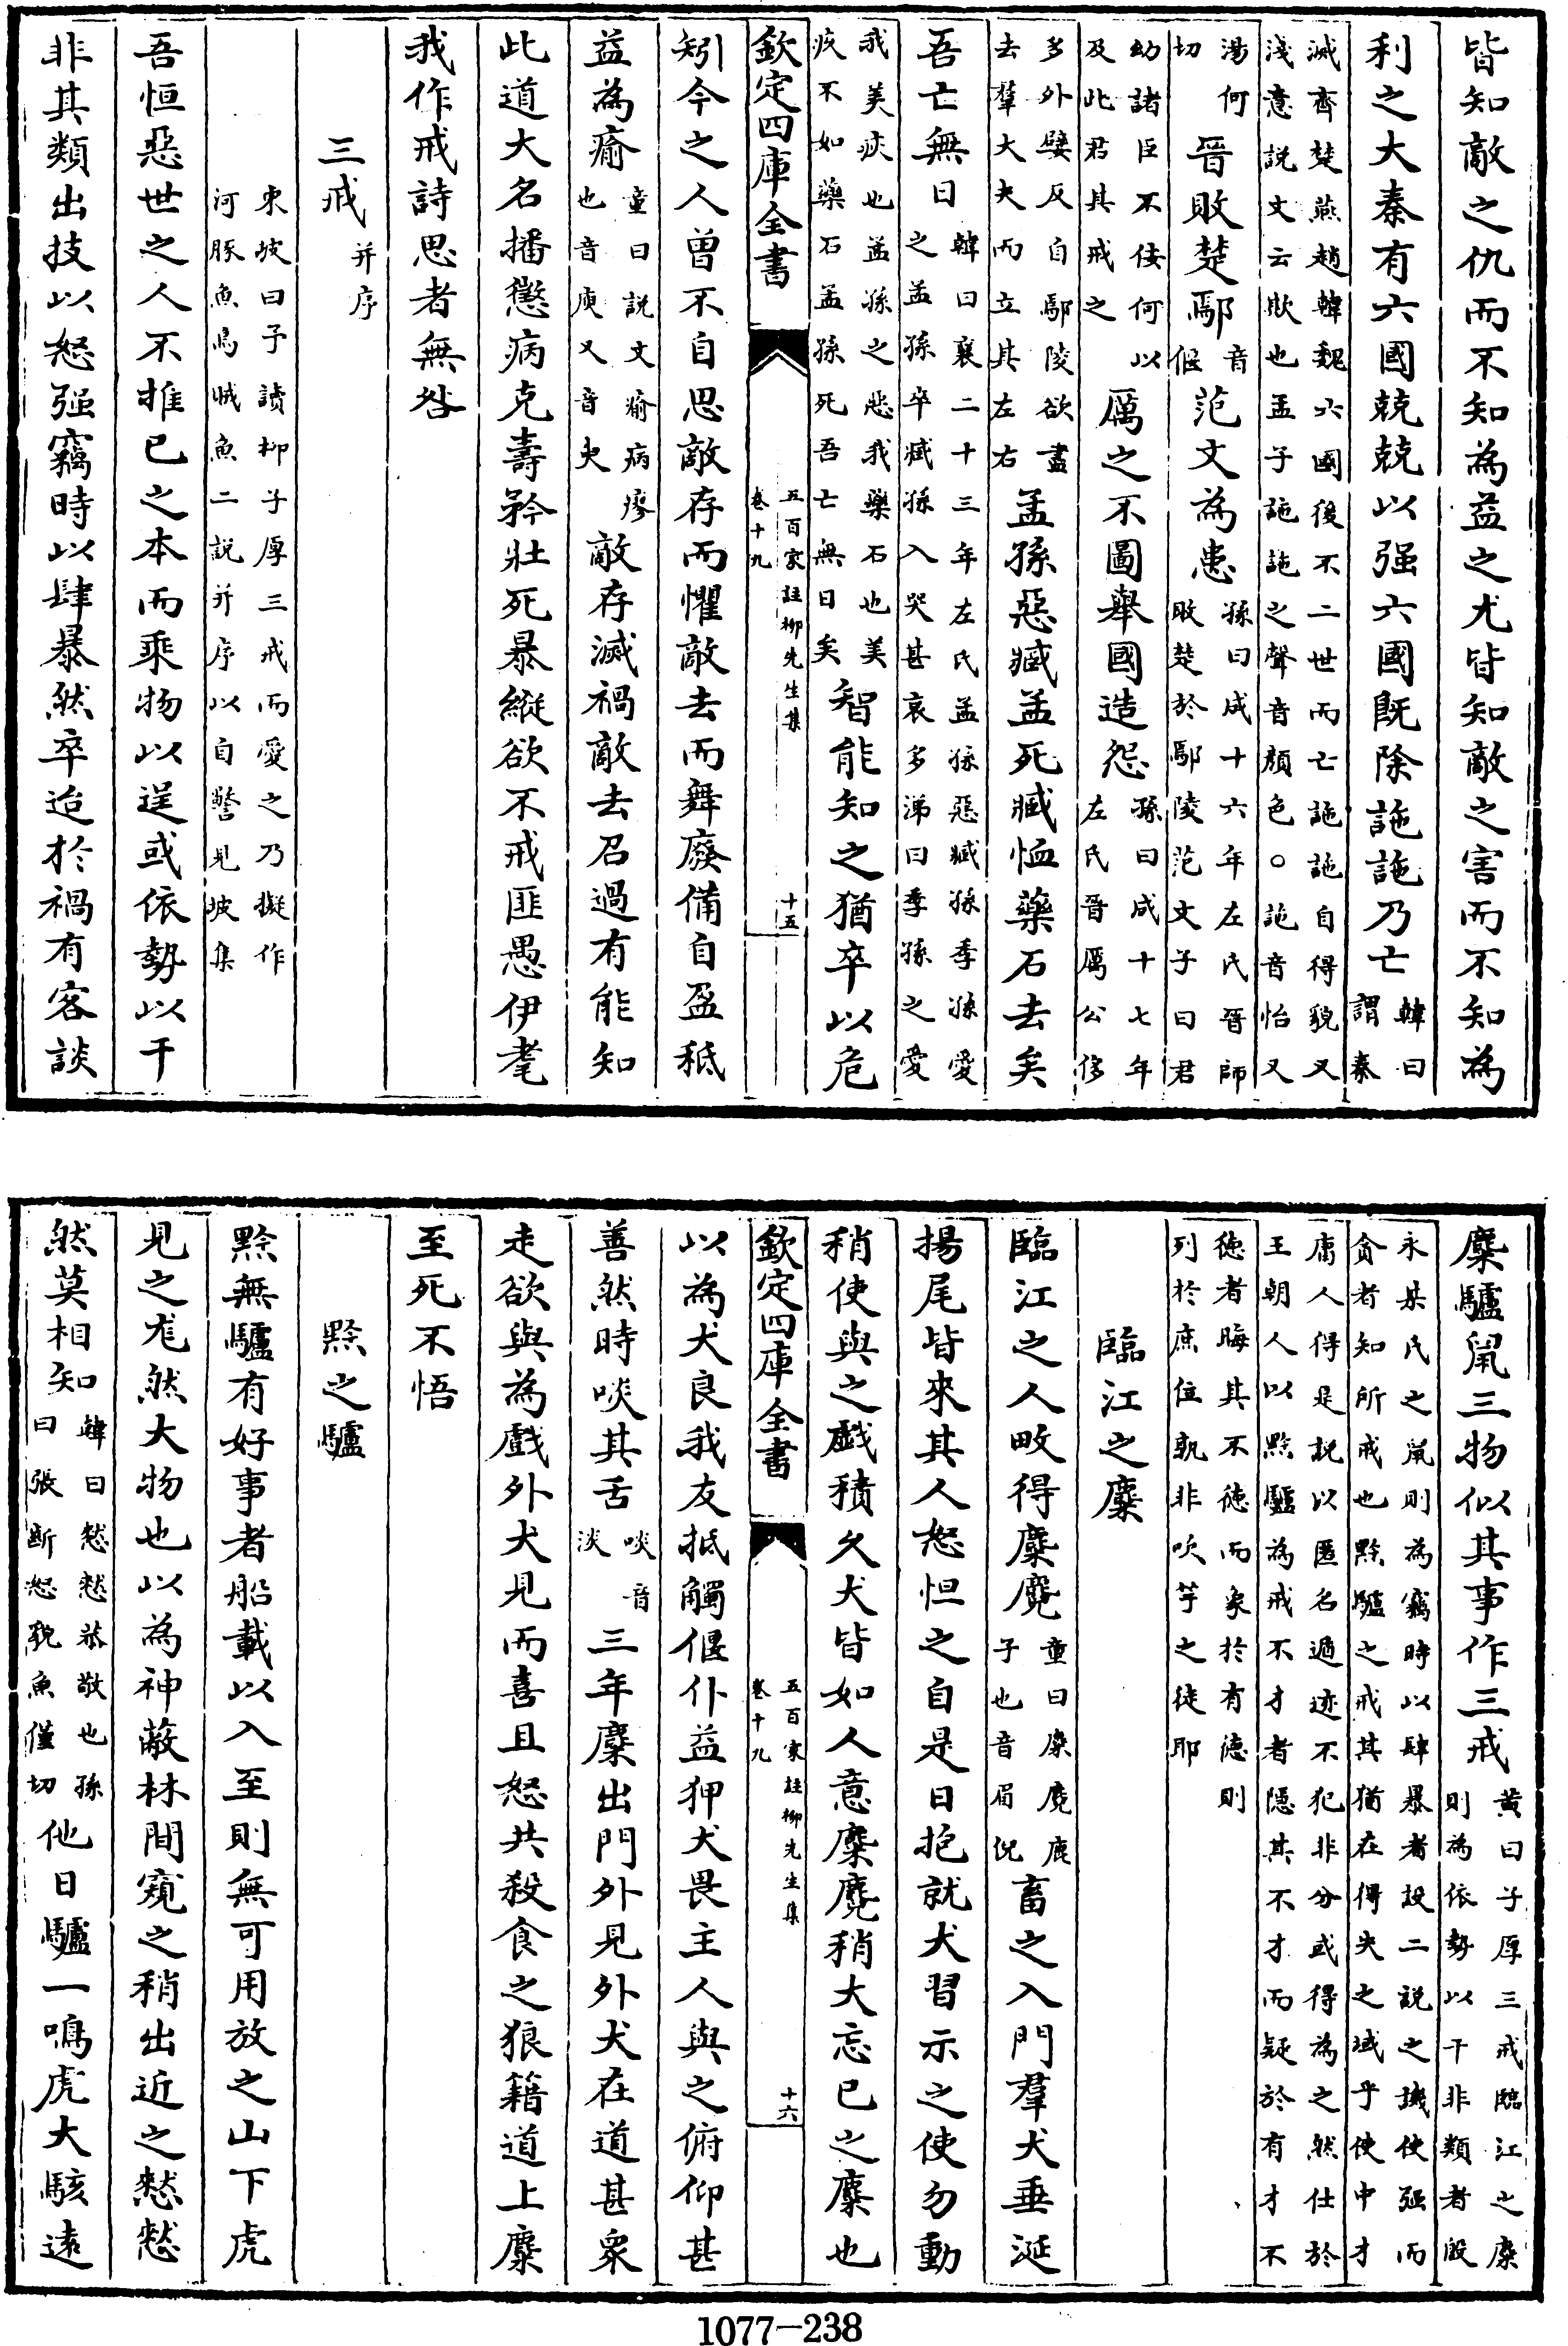 皆知敵之仇而不知為益之尤皆知敵之害而不知為
利之大秦有六國兢兢以强六國既除訑訑乃亡韓曰謂秦
滅齊楚燕趙韓魏六國後不二世而亡訑訑自得貌又淺意説文云欺也孟子訑訑之聲音顔色○訑音怡又
湯何切晉敗楚鄢音偃范文為患孫曰成十六年左氏晉師敗楚於鄢陵范文子曰君
幼諸臣不佞何以及此君其戒之厲之不圖舉國造怨孫曰成十七年左氏晉厲公侈
多外嬖反自鄢陵欲盡去羣大夫而立其左右孟孫惡臧孟死臧恤藥石去矣
吾亡無日韓曰襄二十三年左氏孟孫惡臧孫季孫愛之孟孫卒臧孫入哭甚哀多涕曰季孫之愛
我美疢也孟孫之惡我藥石也美疢不如藥石孟孫死吾亡無日矣智能知之猶卒以危
欽定四庫全書
五百家註柳先生集
卷十九
十五
矧今之人曾不自思敵存而懼敵去而舞廢備自盈秪
益為瘉童曰説文瘉病瘳也音庾又音臾敵存滅禍敵去召過有能知
此道大名播懲病克壽矜壯死暴縱欲不戒匪愚伊耄
我作戒詩思者無咎
三戒并序
東坡曰予讀柳子厚三戒而愛之乃擬作河豚魚烏賊魚二説并序以自警見坡集
吾恒惡世之人不推已之本而乘物以逞或依勢以干
非其類出技以怒强竊時以肆暴然卒迨於禍有客談
麋驢鼠三物似其事作三戒黄曰子厚三戒臨江之麋則為依勢以干非類者設
永某氏之鼠則為竊時以肆暴者設二説之譏使强而貪者知所戒也黔驢之戒其猶在得失之域乎使中才
庸人得是説以匿名遁迹不犯非分或得為之然仕於王朝人以黔驢為戒不才者隱其不才而疑於有才不
徳者晦其不徳而象於有徳則列於庶位孰非吹竽之徒耶
臨江之麋
臨江之人畋得麋麑童曰麋麑鹿子也音眉倪畜之入門羣犬垂涎
揚尾皆來其人怒怛之自是日抱就犬習示之使勿動
稍使與之戲積久犬皆如人意麋麑稍大忘已之麋也
欽定四庫全書
五百家註柳先生集
卷十九
十六
以為犬良我友抵觸偃仆益狎犬畏主人與之俯仰甚
善然時啖其舌啖音淡三年麋出門外見外犬在道甚衆
走欲與為戲外犬見而喜且怒共殺食之狼籍道上麋
至死不悟
黔之驢
黔無驢有好事者船載以入至則無可用放之山下虎
見之尨然大物也以為神蔽林間窺之稍出近之憖憖
然莫相知韓曰憖憖恭敬也孫曰張斷怒貌魚僅切他日驢一鳴虎大駭遠
1077—238